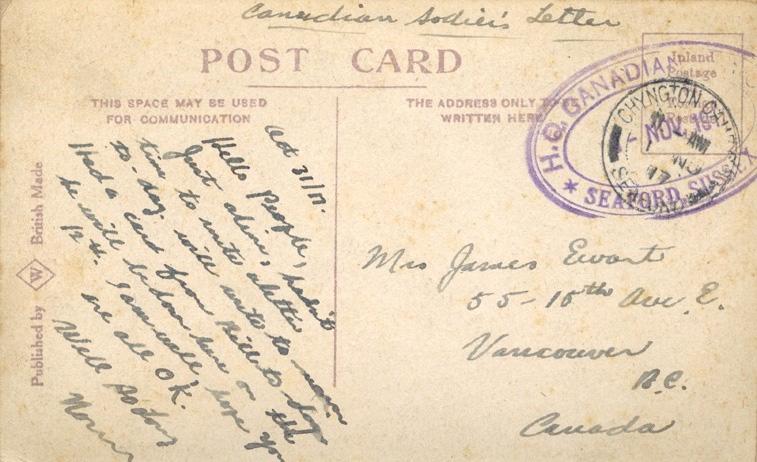 Canadian Sodier's Letter
POST CARD
THIS SPACE MAY BE USED
FOR COMMUNICATION
THE ADDRESS ONLY TO BE
WRITTEN HERE
Inland
Postage
H.Q. CANADIAN
NOV
* SEAFORD, SUSSEX
CHYNGTON CAMP
NO
17
SEAFORD
Oct 31/17.
Hello People,
Just alive, hadn't
time to write a letter
to-day will write to-morrow
Had a card from Bill to say
he will be down here on the
12th. I am well, hope you
are all OK.
Well So long
Norm
Mrs James Ewart
55-10th Ave E.
Vancouver
B.C.
Canada
Published by W British Made